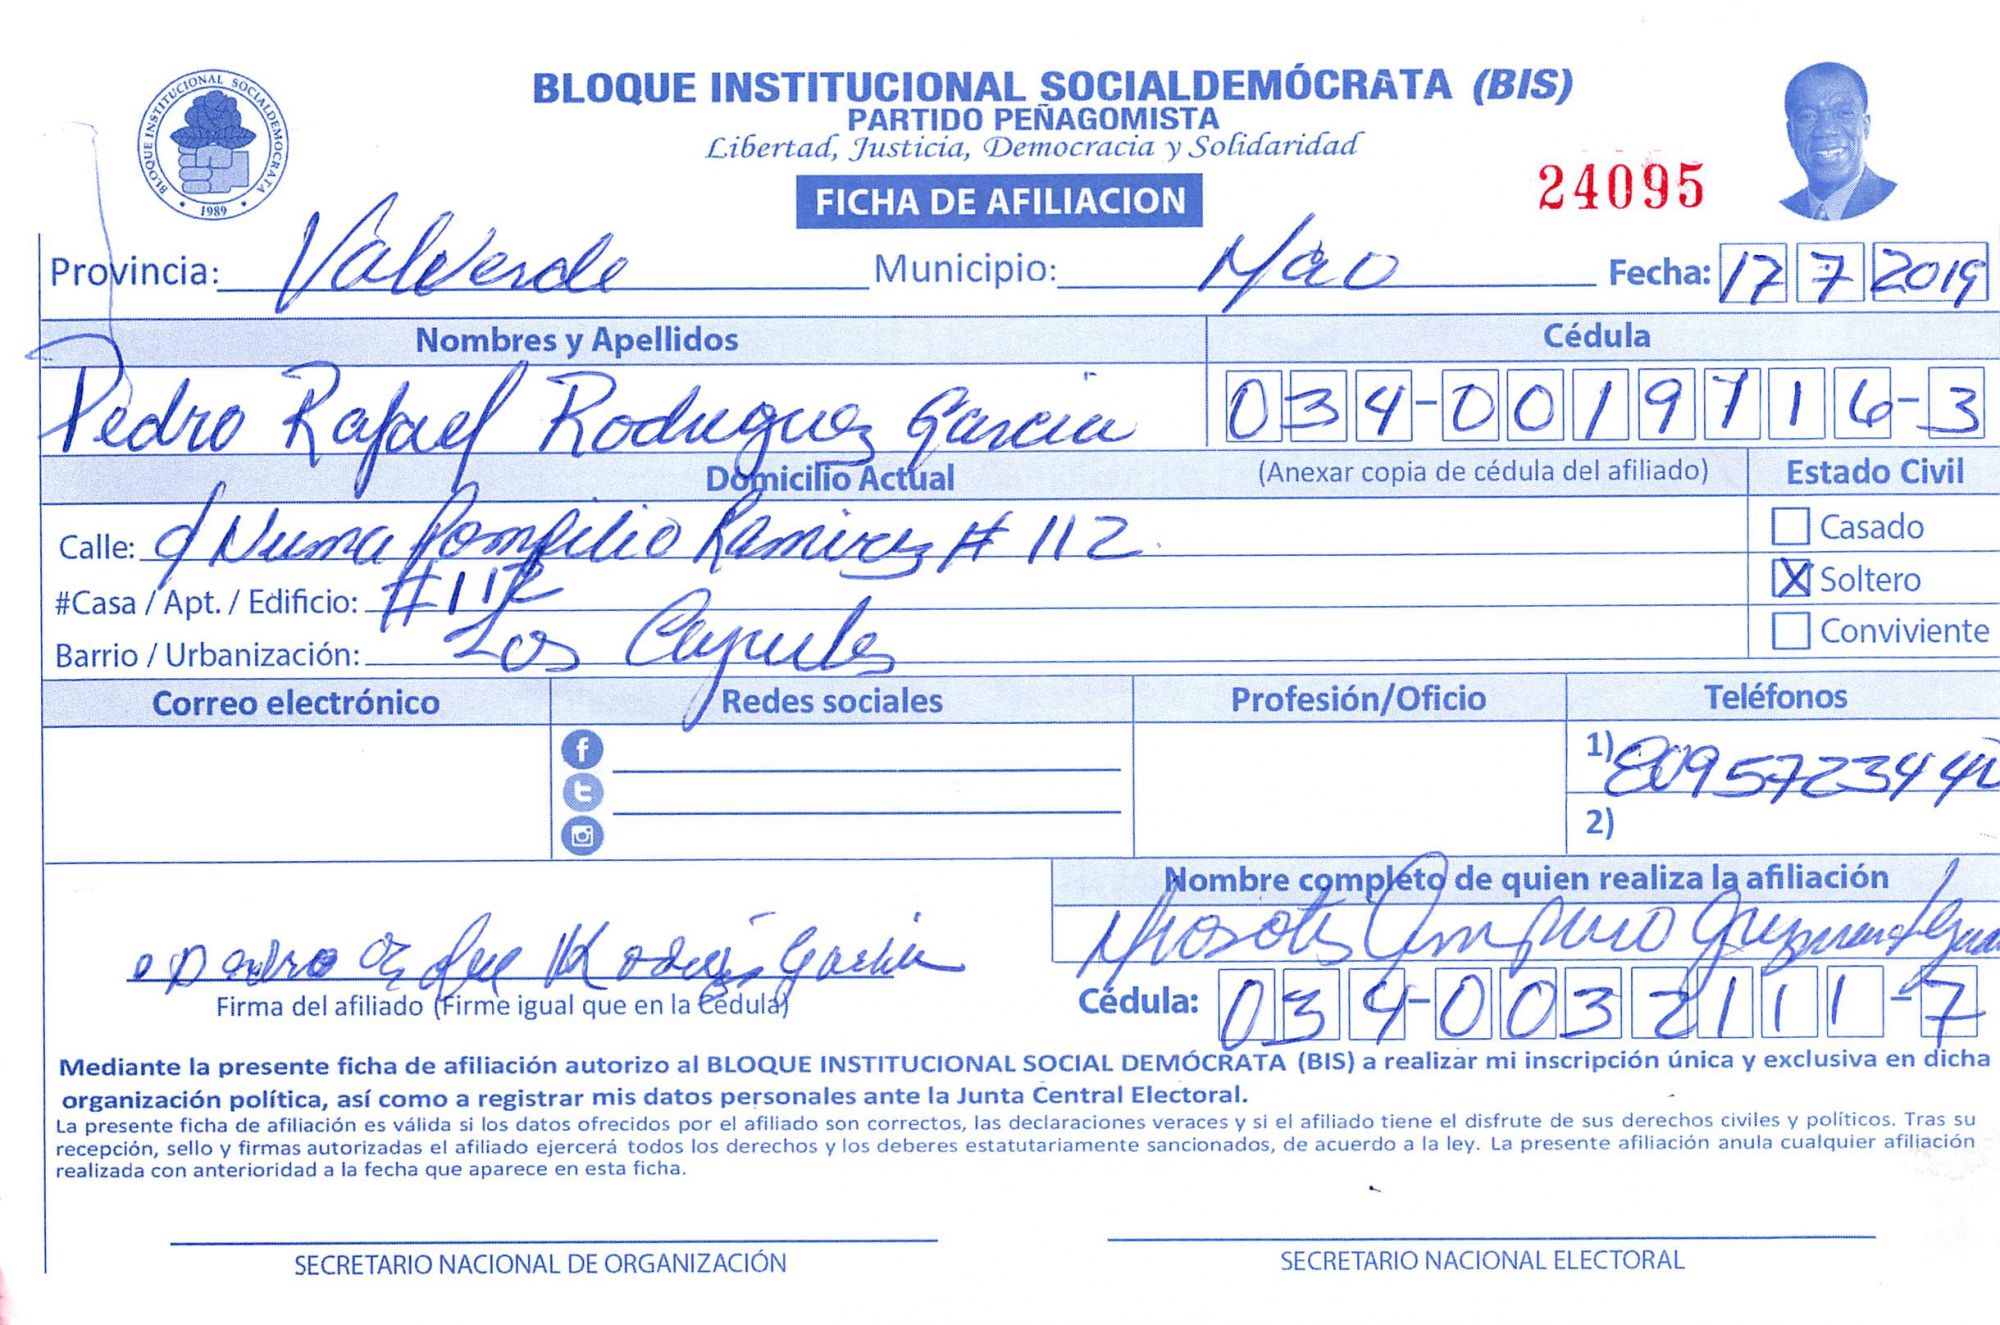 BLOQUE INSTITUCIONAL SOCIALDEMÓCRATA (BIS)
PARTIDO PEÑAGOMISTA
Libertad, Justicia, Democracia y Solidaridad
BLOQUE INSTITUCIONAL SOCIALDEMOCRATA
1989
FICHA DE AFILIACION
24095
Provincia: Valverde Municipio: Mao Fecha: 17 7 2019
Nombres y Apellidos Cédula
Pedro Rafael Rodriguez Garcia 034-0019716-3
Domicilio Actual (Anexar copia de cédula del afiliado) Estado Civil
Calle: c/ Numa Pompilio Ramirez # 112 Casado
#Casa / Apt. / Edificio: #112 X Soltero
Barrio / Urbanización: Los Conviviente
Correo electrónico Redes sociales Profesión/Oficio Teléfonos
1) 809572344
2)
Nombre completo de quien realiza la afiliación
Guzman
Garcia
Firma del afiliado (Firme igual que en la Cédula) Cédula: 034-0032111-7
Mediante la presente ficha de afiliación autorizo al BLOQUE INSTITUCIONAL SOCIAL DEMÓCRATA (BIS) a realizar mi inscripción única y exclusiva en dicha
organización política, así como a registrar mis datos personales ante la Junta Central Electoral.
La presente ficha de afiliación es válida si los datos ofrecidos por el afiliado son correctos, las declaraciones veraces y si el afiliado tiene el disfrute de sus derechos civiles y políticos. Tras su
recepción, sello y firmas autorizadas el afiliado ejercerá todos los derechos y los deberes estatutariamente sancionados, de acuerdo a la ley. La presente afiliación anula cualquier afiliación
realizada con anterioridad a la fecha que aparece en esta ficha.
SECRETARIO NACIONAL DE ORGANIZACIÓN SECRETARIO NACIONAL ELECTORAL